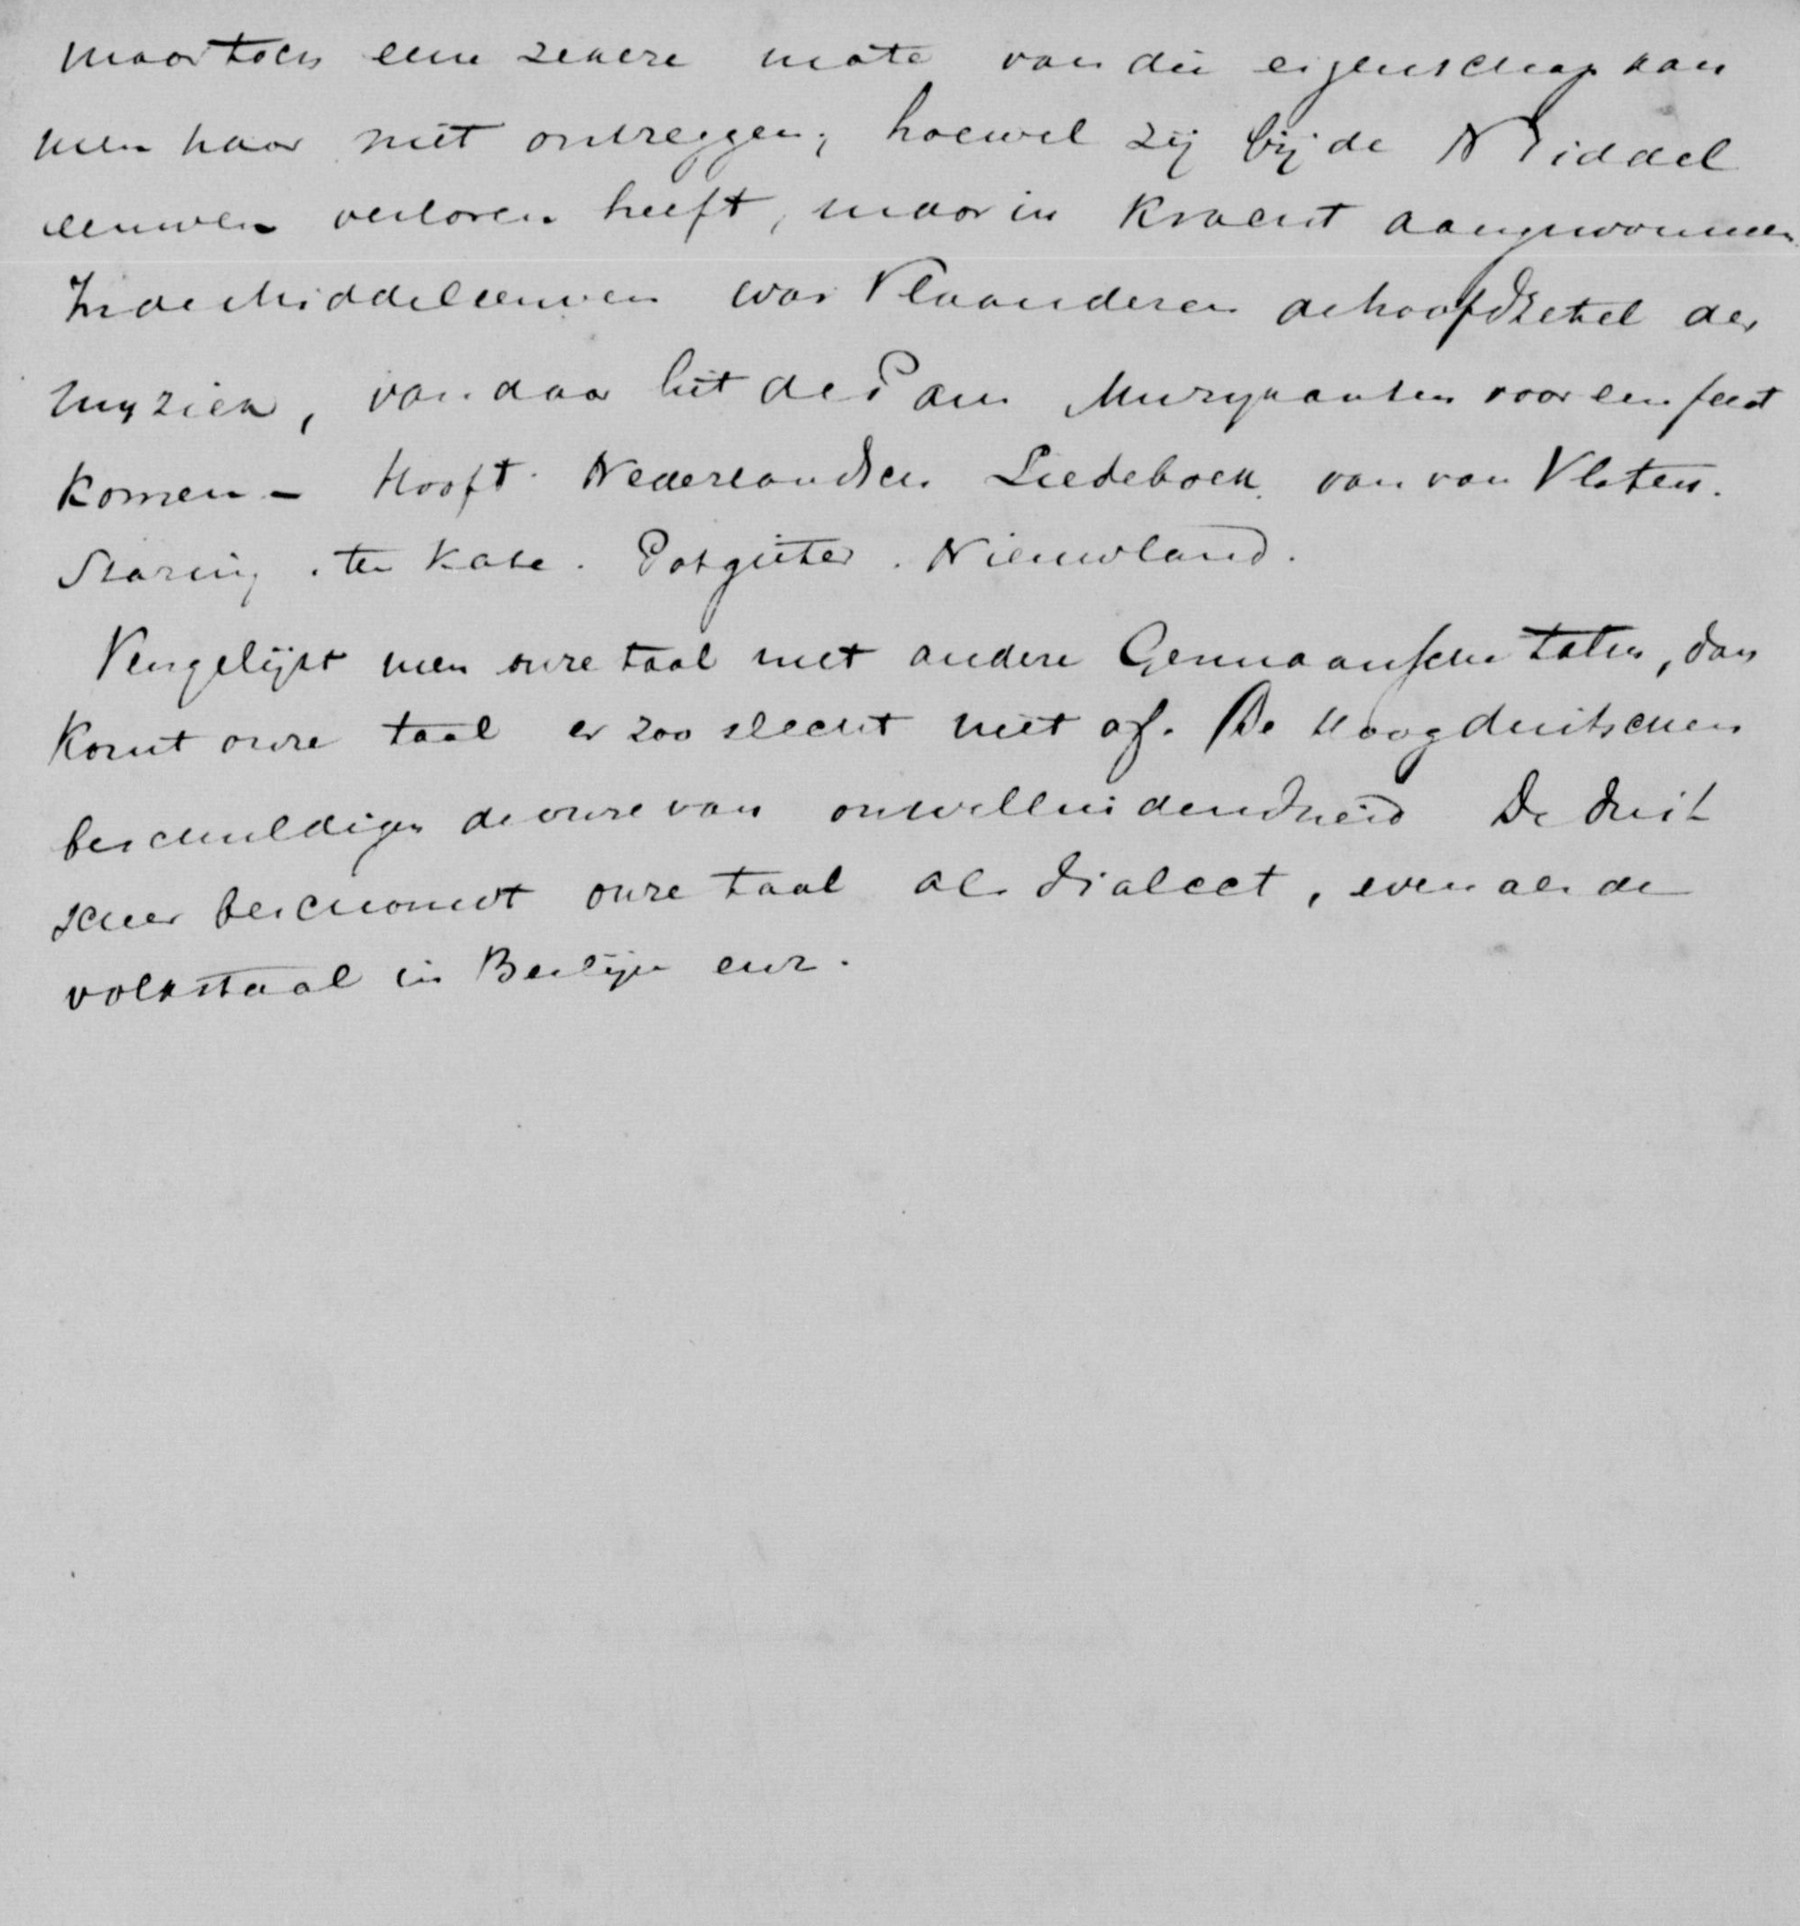 maar toch eene zekere mate van die eigenschap kan
men haar niet ontzeggen; hoewel zij bij de Middel
eeuwen verloren heeft, maar in kracht aangewonnen
In de Middeleeuwen was Vlaanderen de hoofdzetel der
muziek, van daar liet de Paus Muzykanten voor een feest
komen – Hooft. Nederlandsch Liedeboek van van Vloten.
Staring. ten Kate. Potgieter. Nieuwland.
Vergelijkt men onze taal met andere Germaansche talen, dan
komt onze taal er zoo slecht niet af. De Hoogduitschers
beschuldigen de onze van onwelluidendheid De Duit
scher beschouwt onze taal als dialect, even als de
volkstaal in Berlijn enz.